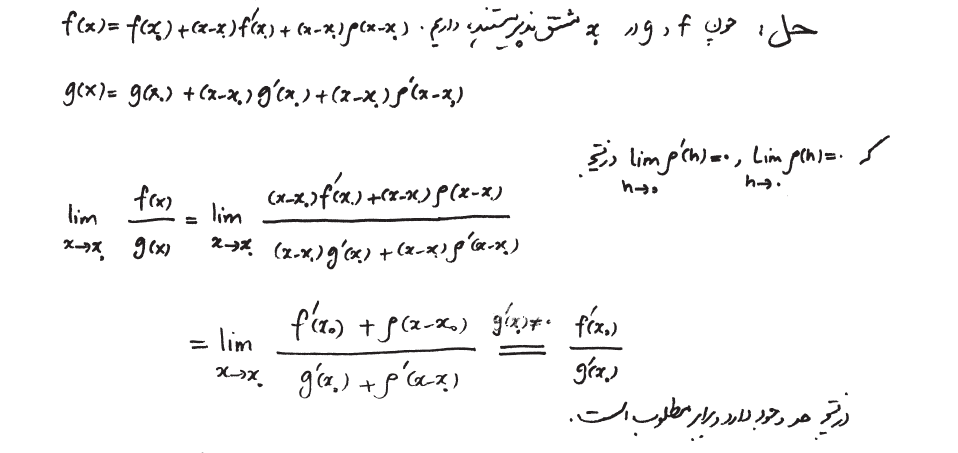 حل: چون f و g در x₀ مشتق پذیر هستند، داریم. f(x) = f(x₀) + (x-x₀)f'(x₀) + (x-x₀)ρ(x-x₀)
g(x) = g(x₀) + (x-x₀)g'(x₀) + (x-x₀)ρ'(x-x₀)
که lim_{h→0} ρ(h)=0 , lim_{h→0} ρ'(h)=0 در نتیجه.
lim_{x→x₀} f(x)/g(x) = lim_{x→x₀} ((x-x₀)f'(x₀) + (x-x₀)ρ(x-x₀))/((x-x₀)g'(x₀) + (x-x₀)ρ'(x-x₀))
= lim_{x→x₀} (f'(x₀) + ρ(x-x₀))/(g'(x₀) + ρ'(x-x₀)) =^{g'(x₀)≠0} f'(x₀)/g'(x₀)
در نتیجه حد وجود دارد و برابر مطلوب است.